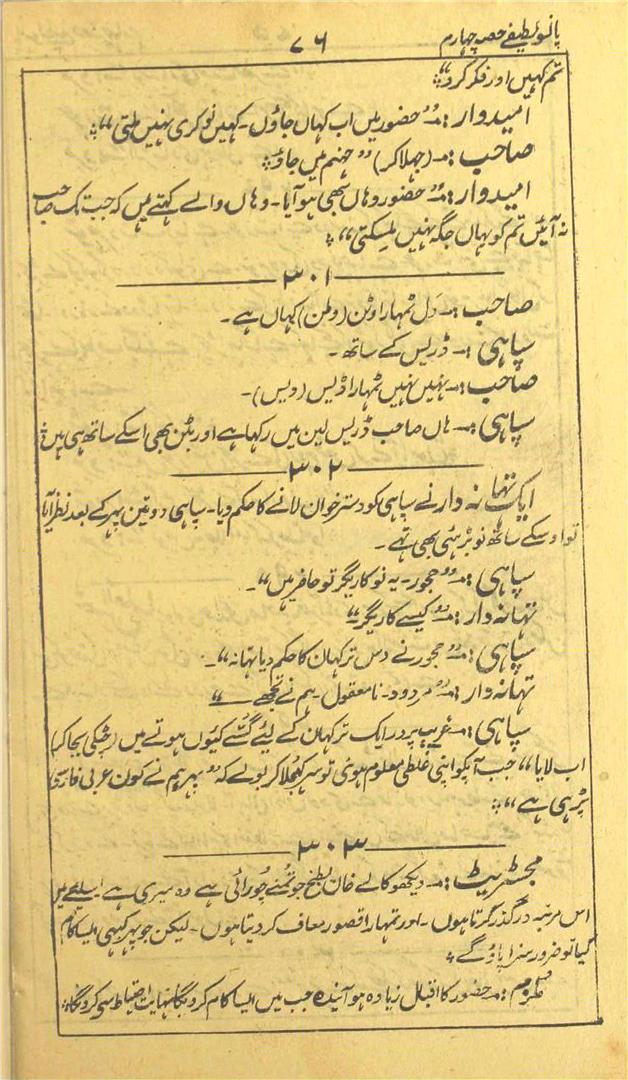 پانسو لطیفے حصہ چہارم
۷۶
تم کہیں اور فکر کرو"۔
امیدوار:۔ "حضور میں اب کہاں جاؤں۔ کہیں نوکری نہیں ملتی"۔
صاحب:۔ (جھلا کر) "جہنم میں جاؤ"۔
امیدوار:۔ "حضور وہاں بھی ہو آیا۔ وہاں والے کہتے ہیں کہ جب تک صاحب
نہ آئیں تم کو یہاں جگہ نہیں مل سکتی"۔
۳۰۱
صاحب:۔ دل ٹمہارا وٹن (وطن) کہاں ہے۔
سپاہی:۔ ڈریس کے ساتھ۔
صاحب:۔ نہیں نہیں ٹمہارا ڈیس (دیس)۔
سپاہی:۔ ہاں صاحب ڈریس لین میں رکہا ہے اور بٹن بھی اسکے ساتھ ہی ہیں۔
۳۰۲
ایک تہانہ دار نے سپاہی کو دسترخوان لانے کا حکم دیا۔ سپاہی دو تین پہر کے بعد نظر آیا
تو اوسکے ساتھ نو بڑہئی بھی تہے۔
سپاہی:۔ "حجور۔ یہ نو کاریگر تو حاضر ہیں"۔
تہانہ دار:۔ "کیسے کاریگر"
سپاہی:۔ "حجور نے دس ترکہان کا حکم دیا تہا نہ"۔
تہانہ دار:۔ "مردود۔ نامعقول۔ ہم نے تجھے ــــ"
سپاہی:۔ غریب پرور ایک ترکہان کے لیئے گسّے کیوں ہوتے ہیں (چٹکی بجا کر)
اب لایا" جب آپکو اپنی غلطی معلوم ہوئی تو سر کہجلا کر بولے کہ "پہر ہم نے کون عربی فارسی
پڑہی ہے"۔
۳۰۳
مجسٹریٹ:۔ دیکھو کالے خان بطخ جو تمنے چورائی ہے وہ میری ہے اسلیئے میں
اس مرتبہ درگذر کرتا ہوں۔ اور تمہارا قصور معاف کر دیتا ہوں۔ لیکن جو پہر کبہی ایسا کام
کیا تو ضرور سزا پاؤ گے۔
ملزم:۔ حضور کا اقبال زیادہ ہو آیندہ جب میں ایسا کام کرونگا نہایت احتیاط سے کرونگا۔